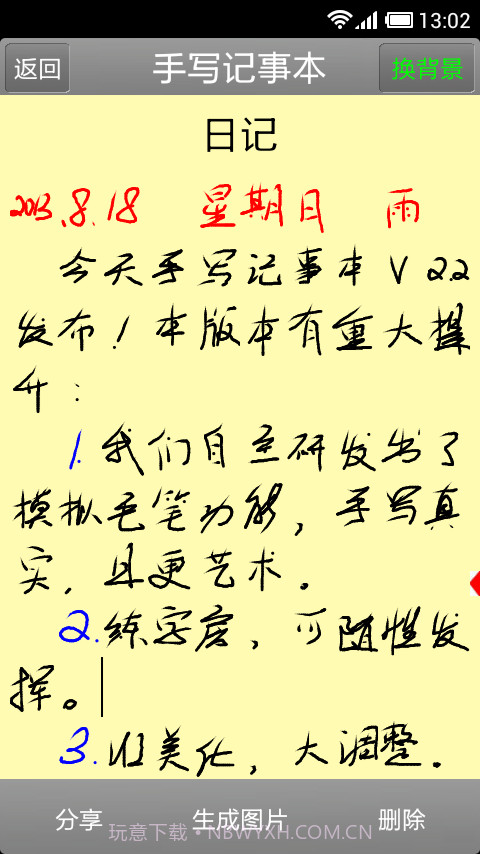 13:02
返回 手写记事本 换背景
日记
2013.8.18 星期日 雨
今天手写记事本V2.2
发布！本版本有重大提
升：
1.我们自主研发出了
模拟毛笔功能，手写真
实，且更艺术。
2.练字房，可随性发
挥。
3.UI美化，大调整。
分享 生成图片 删除
玩意下载·NBWYXH.COM.CN